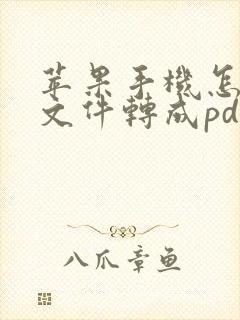 苹果手機怎
文件轉成pd
八爪章鱼